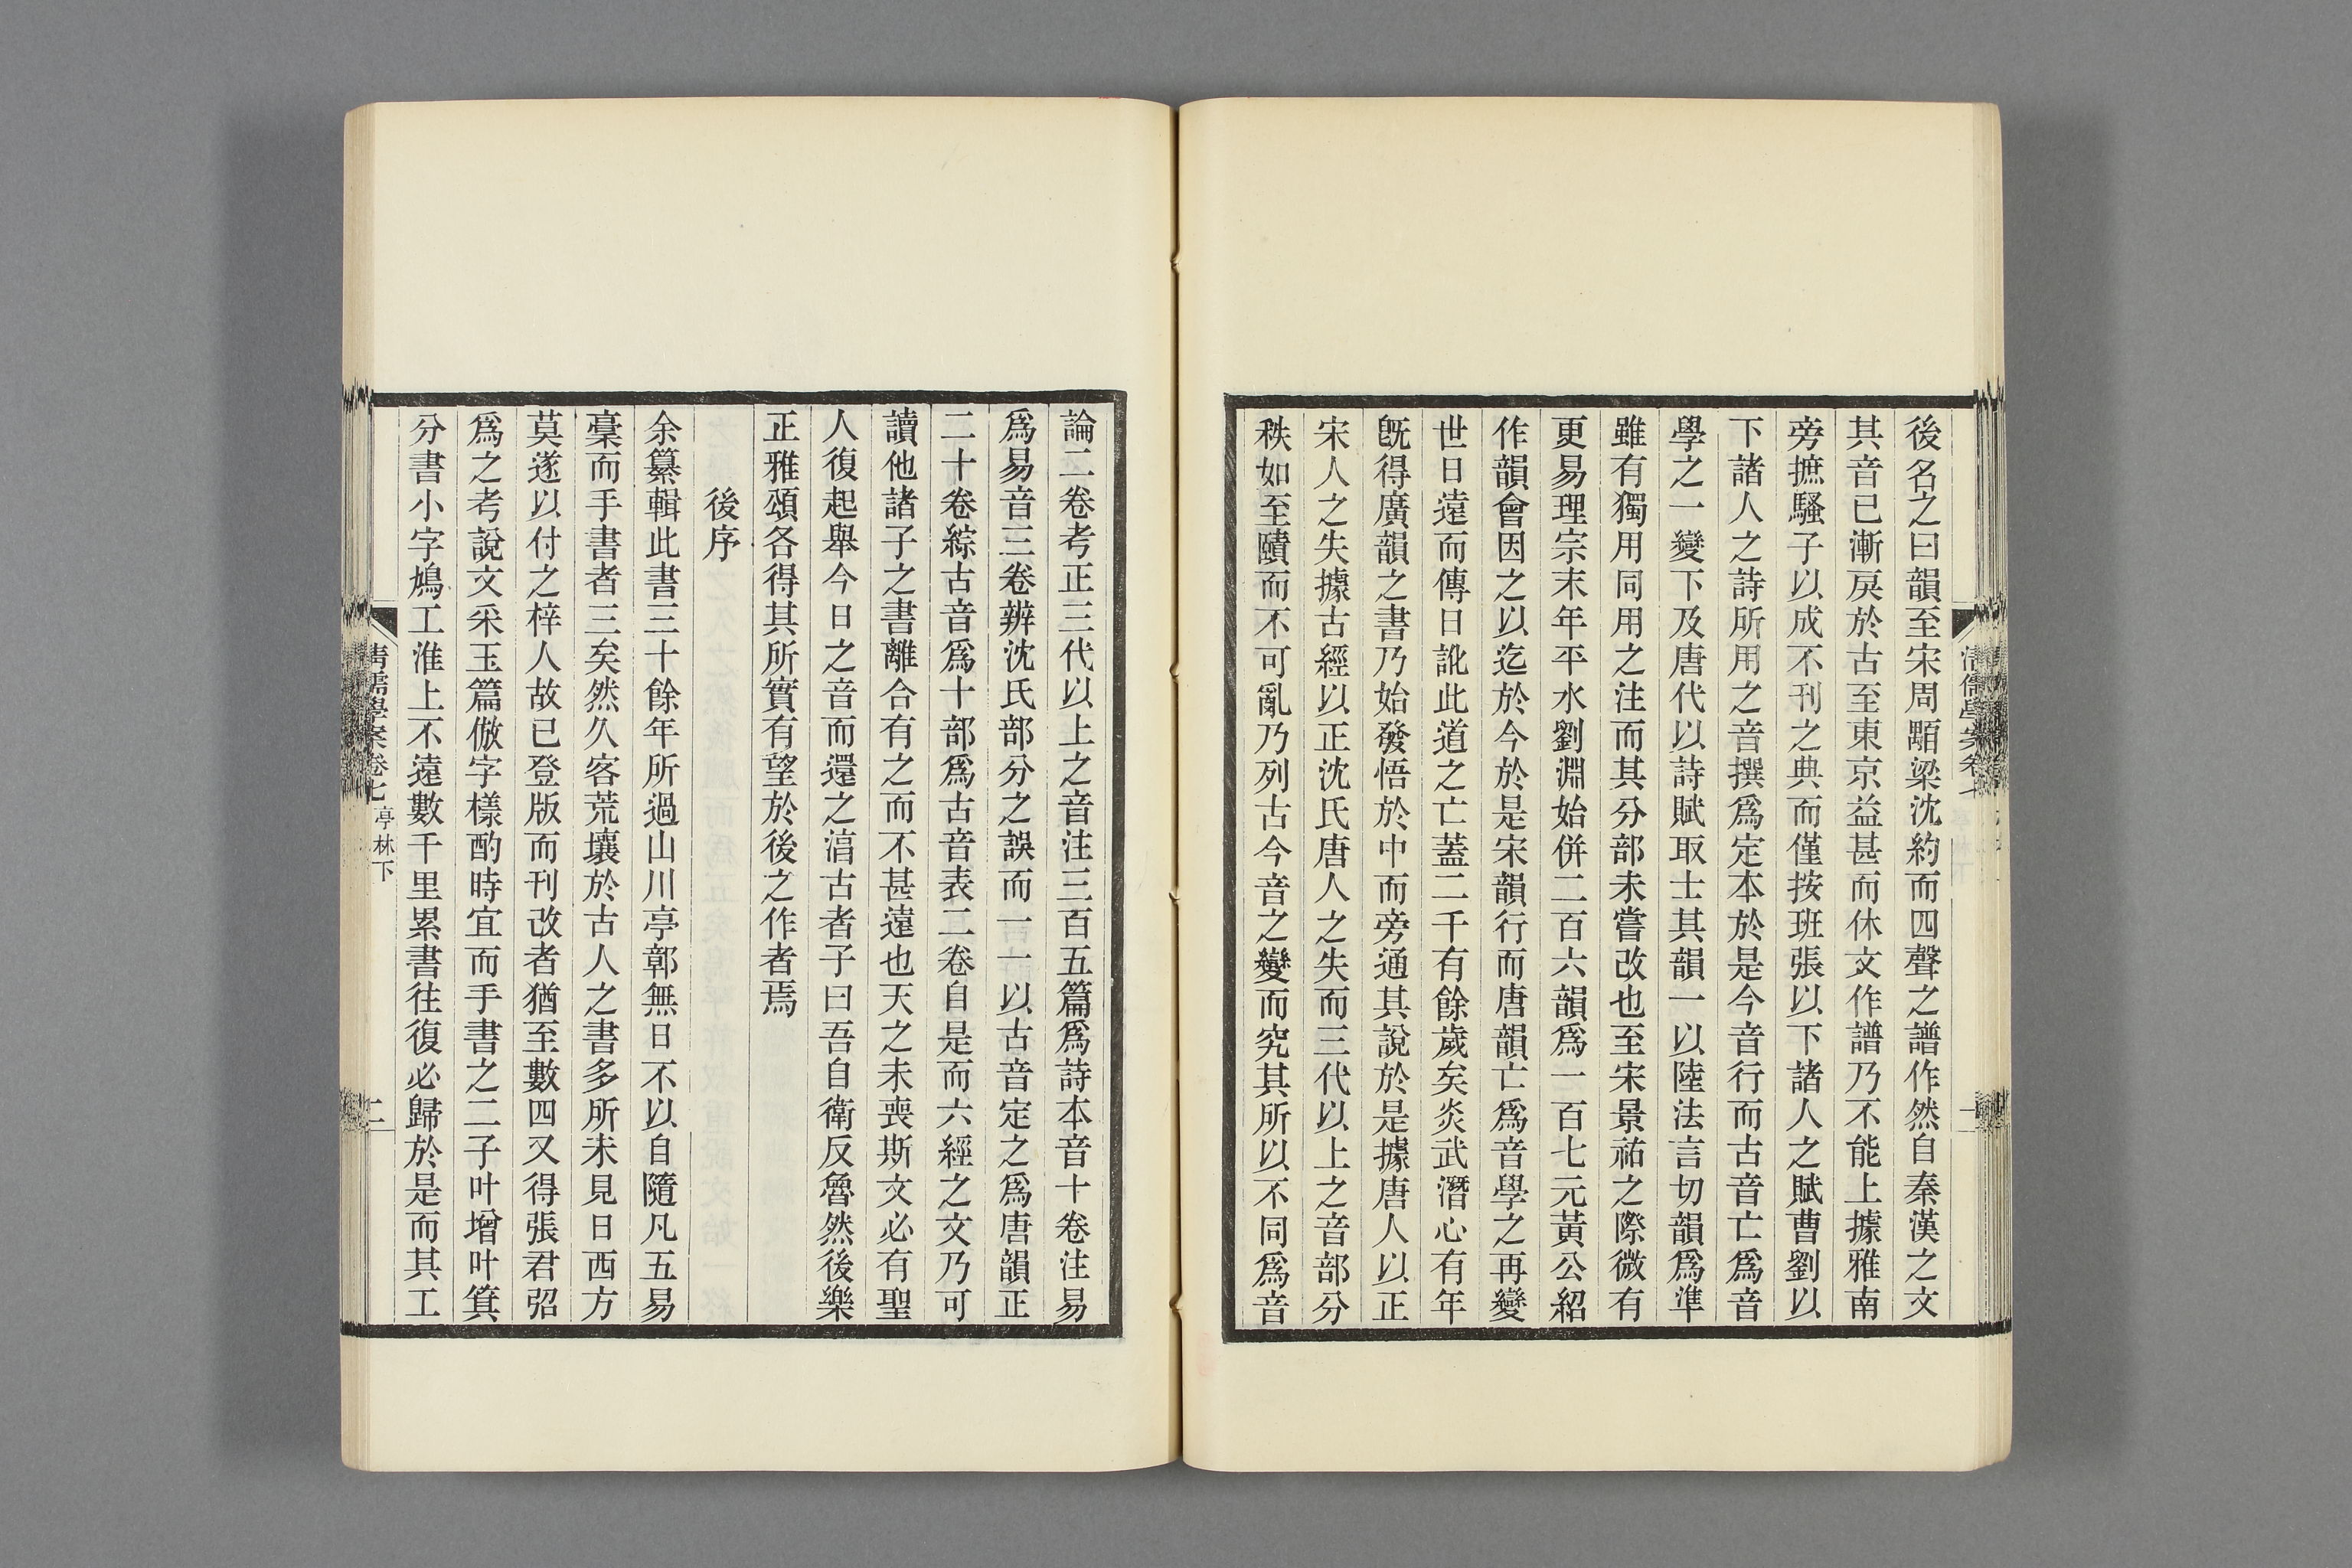 後名之曰韻至宋周顒梁沈約而四聲之譜作然自秦漢之文
其音已漸戾於古至東京益甚而休文作譜乃不能上據雅南
旁摭騷子以成不刊之典而僅按班張以下諸人之賦曹劉以
下諸人之詩所用之音撰爲定本於是今音行而古音亡爲音
學之一變下及唐代以詩賦取士其韻一以陸法言切韻爲準
雖有獨用同用之注而其分部未嘗改也至宋景祐之際微有
更易理宗末年平水劉淵始併二百六韻爲一百七元黃公紹
作韻會因之以迄於今於是宋韻行而唐韻亡爲音學之再變
世日遠而傳日訛此道之亡蓋二千有餘歲矣炎武潛心有年
旣得廣韻之書乃始發悟於中而旁通其說於是據唐人以正
宋人之失據古經以正沈氏唐人之失而三代以上之音部分
秩如至賾而不可亂乃列古今音之變而究其所以不同爲音
論二卷考正三代以上之音注三百五篇爲詩本音十卷注易
爲易音三卷辨沈氏部分之誤而一一以古音定之爲唐韻正
二十卷綜古音爲十部爲古音表二卷自是而六經之文乃可
讀他諸子之書離合有之而不甚遠也天之未喪斯文必有聖
人復起舉今日之音而還之淳古者子曰吾自衛反魯然後樂
正雅頌各得其所實有望於後之作者焉
後序
余纂輯此書三十餘年所過山川亭鄣無日不以自隨凡五易
稾而手書者三矣然久客荒壤於古人之書多所未見日西方
莫遂以付之梓人故已登版而刊改者猶至數四又得張君弨
爲之考說文采玉篇倣字樣酌時宜而手書之二子叶增叶箕
分書小字鳩工淮上不遠數千里累書往復必歸於是而其工
清儒學案卷七 亭林下 二